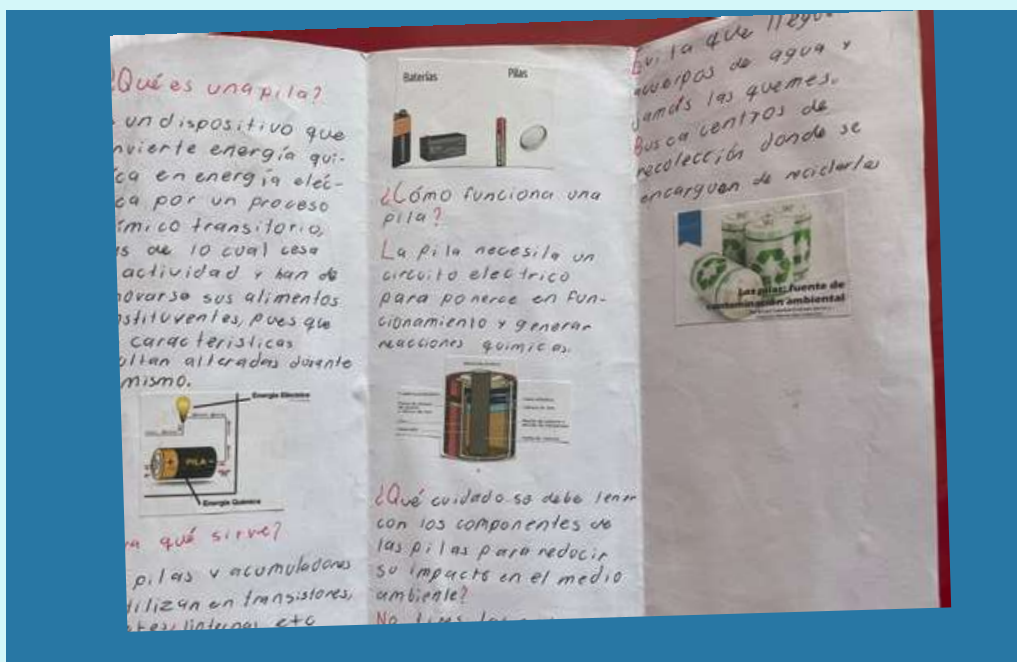 ¿Qué es una pila?
un dispositivo que
nvierte energía quí-
ca en energía eléc-
ca por un proceso
ímico transitorio,
s de lo cual cesa
actividad y han de
novarse sus alimentos
nstituyentes, pues que
características
ultan alteradas durante
mismo.
Energía Eléctrica
PILA
Energía Química
a qué sirve?
pilas y acumuladores
tilizan en transistores,
etc
Baterías
Pilas
¿Cómo funciona una
pila?
La pila necesita un
circuito eléctrico
para ponerce en fun-
cionamiento y generar
reacciones químicas.
¿Qué cuidado se debe tener
con los componentes de
las pilas para reducir
su impacto en el medio
ambiente?
No
Evita que llegu
cuerpos de agua y
jamás las quemes.
Busca centros de
recolección donde se
encarguen de reciclarlas
Las pilas: fuente de
contaminación ambiental